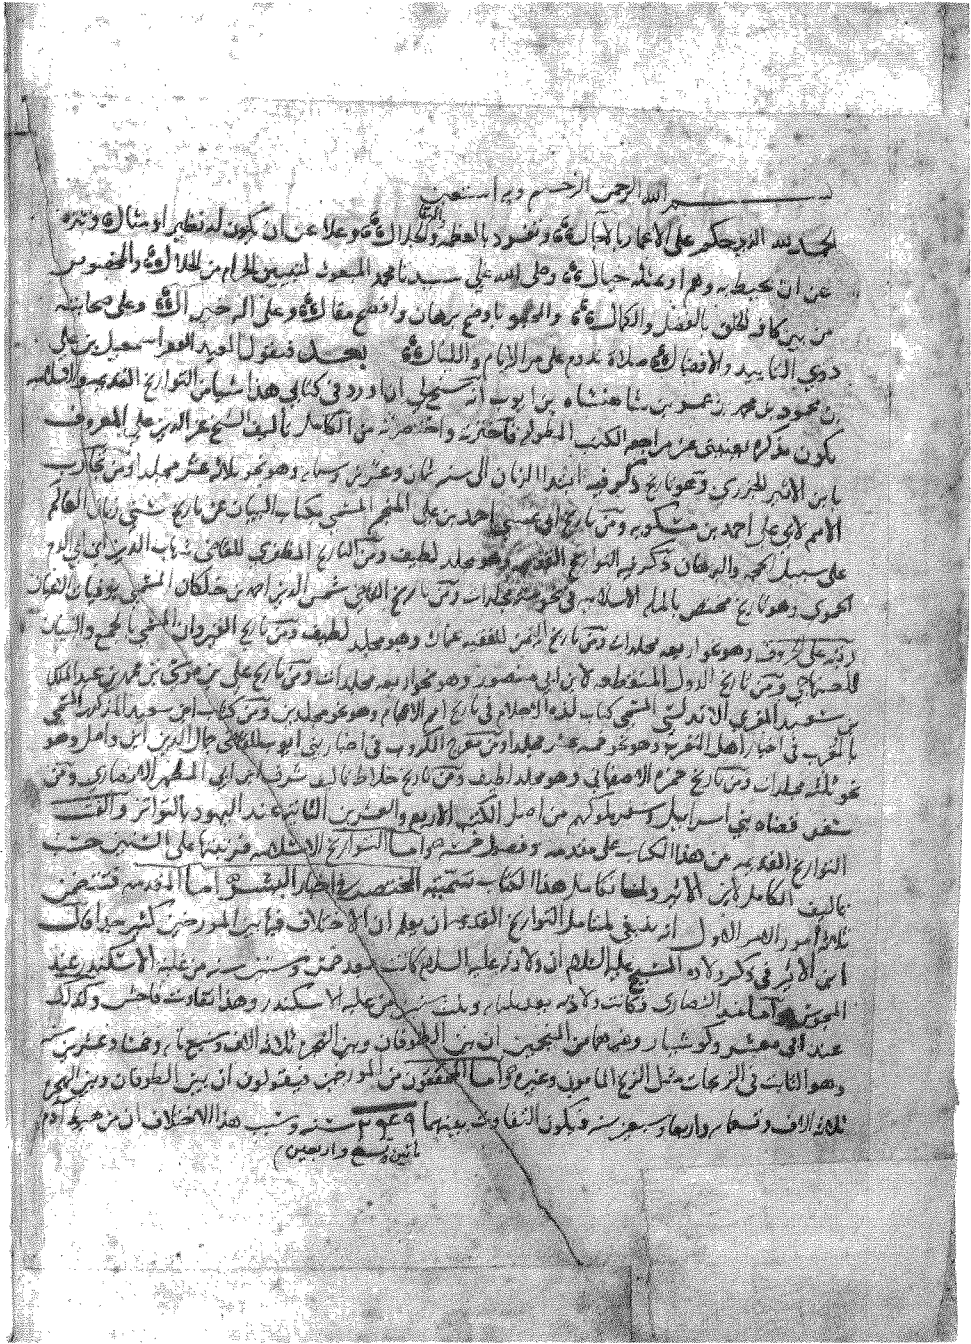 بسم الله الرحمن الرحيم وبه استعين
الحمد لله الذي حكم على الاعمار بالاجال وتفرد بالعظمة والبقا والجلال وعلا عن ان يكون له نظير او مثال وتنزه
عن ان يحيط به وهم او يمثله خيال وصلى الله على سيدنا محمد المبعوث لتبيين الحرام من الحلال والمخصوص
من بين كافة الخلق بالفضل والكمال والمحبو باوضح برهان وافصح مقال وعلى اله خير ال وعلى صحابته
ذوي التاييد والافضال صلاة تدوم على مر الايام والليال بعد فيقول العبد الفقير اسمعيل بن علي
بن محمود بن محمد بن عمر بن شاهنشاه بن ايوب انه سنح لي ان اورد في كتابي هذا شيا من التواريخ القديمة والاسلامية
يكون تذكرة يغنيني عن مراجعة الكتب المطولة فاخترته واختصرته من الكامل تاليف الشيخ عز الدين علي المعروف
بابن الاثير الجزري وهو تاريخ ذكر فيه ابتدا الزمان الى سنة ثمان وعشرين وستمايه وهو نحو ثلاثة عشر مجلدا ومن تجارب
الامم لابي علي احمد بن مسكويه ومن تاريخ ابي عيسى احمد بن علي المنجم المسمى بكتاب البيان عن تاريخ سني زمان العالم
على سبيل الحجة والبرهان ذكر فيه التواريخ القديمة وهو مجلد لطيف ومن التاريخ المظفري للقاضي شهاب الدين ابن ابي الدم
الحموي وهو تاريخ مختص بالملة الاسلاميه في نحو ستة مجلدات ومن تاريخ القاضي شمس الدين احمد بن خلكان المسمى بوفيات الاعيان
رتبه على الحروف وهو نحو اربعه مجلدات ومن تاريخ اليمن للفقيه عمارة وهو مجلد لطيف ومن تاريخ القيروان المسمى بالجمع والبيان
للصنهاجي ومن تاريخ الدول المنقطعه لابن ابي منصور وهو نحو اربعه مجلدات ومن تاريخ علي بن موسى بن محمد بن عبد الملك
بن سعيد المغربي الاندلسي المسمى كتاب لذة الاحلام في تاريخ امم الاعجام وهو نحو مجلدين ومن كتاب ابن سعيد المذكور المسمى
بالمغرب في اخبار اهل المغرب وهو نحو خمسة عشر مجلدا ومن مفرج الكروب في اخبار بني ايوب للقاضي جمال الدين ابن واصل وهو
نحو ثلثه مجلدات ومن تاريخ حمزة الاصفهاني وهو مجلد لطيف ومن تاريخ خلاط تاليف شرف ابن ابي المطهر الانصاري ومن
سفر قضاة بني اسراييل وسفر ملوكهم من اصل الكتب الاربع والعشرين الثابتة عند اليهود بالتواتر والفت
التواريخ القديمه من هذا الكتاب على مقدمه وفصول خمسة واما التواريخ الاسلاميه فرتبتها على السنين حسب
تاليف الكامل لابن الاثير ولما تكامل هذا الكتاب سميته المختصر في اخبار البشر اما المقدمه فتتضمن
ثلاثة امور الامر الاول انه ينبغي لمتامل التواريخ القديمة ان يعلم ان الاختلاف فيها بين المورخين كثير جدا قال
ابن الاثير في ذكر ولادة المسيح عليه السلام ان ولادته عليه السلام كانت بعد خمس وستين سنه من غلبة الاسكندر عند
المجوس واما عند النصارى فكانت ولادته بعد ثلثمايه وثلث سنين من غلبة الاسكندر وهذا تفاوت فاحش وكذلك
عند ابي معشر وكوشيار وغيرهما من المنجمين ان بين الطوفان وبين الهجرة ثلاثة الاف وسبع مايه وخمسا وعشرين سنه
وهو الثابت في الزيجات مثل الزيج الماموني وغيره واما المحققون من المورخين فيقولون ان بين الطوفان وبين الهجرة
ثلاثة الاف وتسعمايه واربعا وسبعين سنه فيكون التفاوت بينهما ٢٤٩ سنه وسبب هذا الاختلاف ان من هبوط آدم
مايتين وتسع واربعين